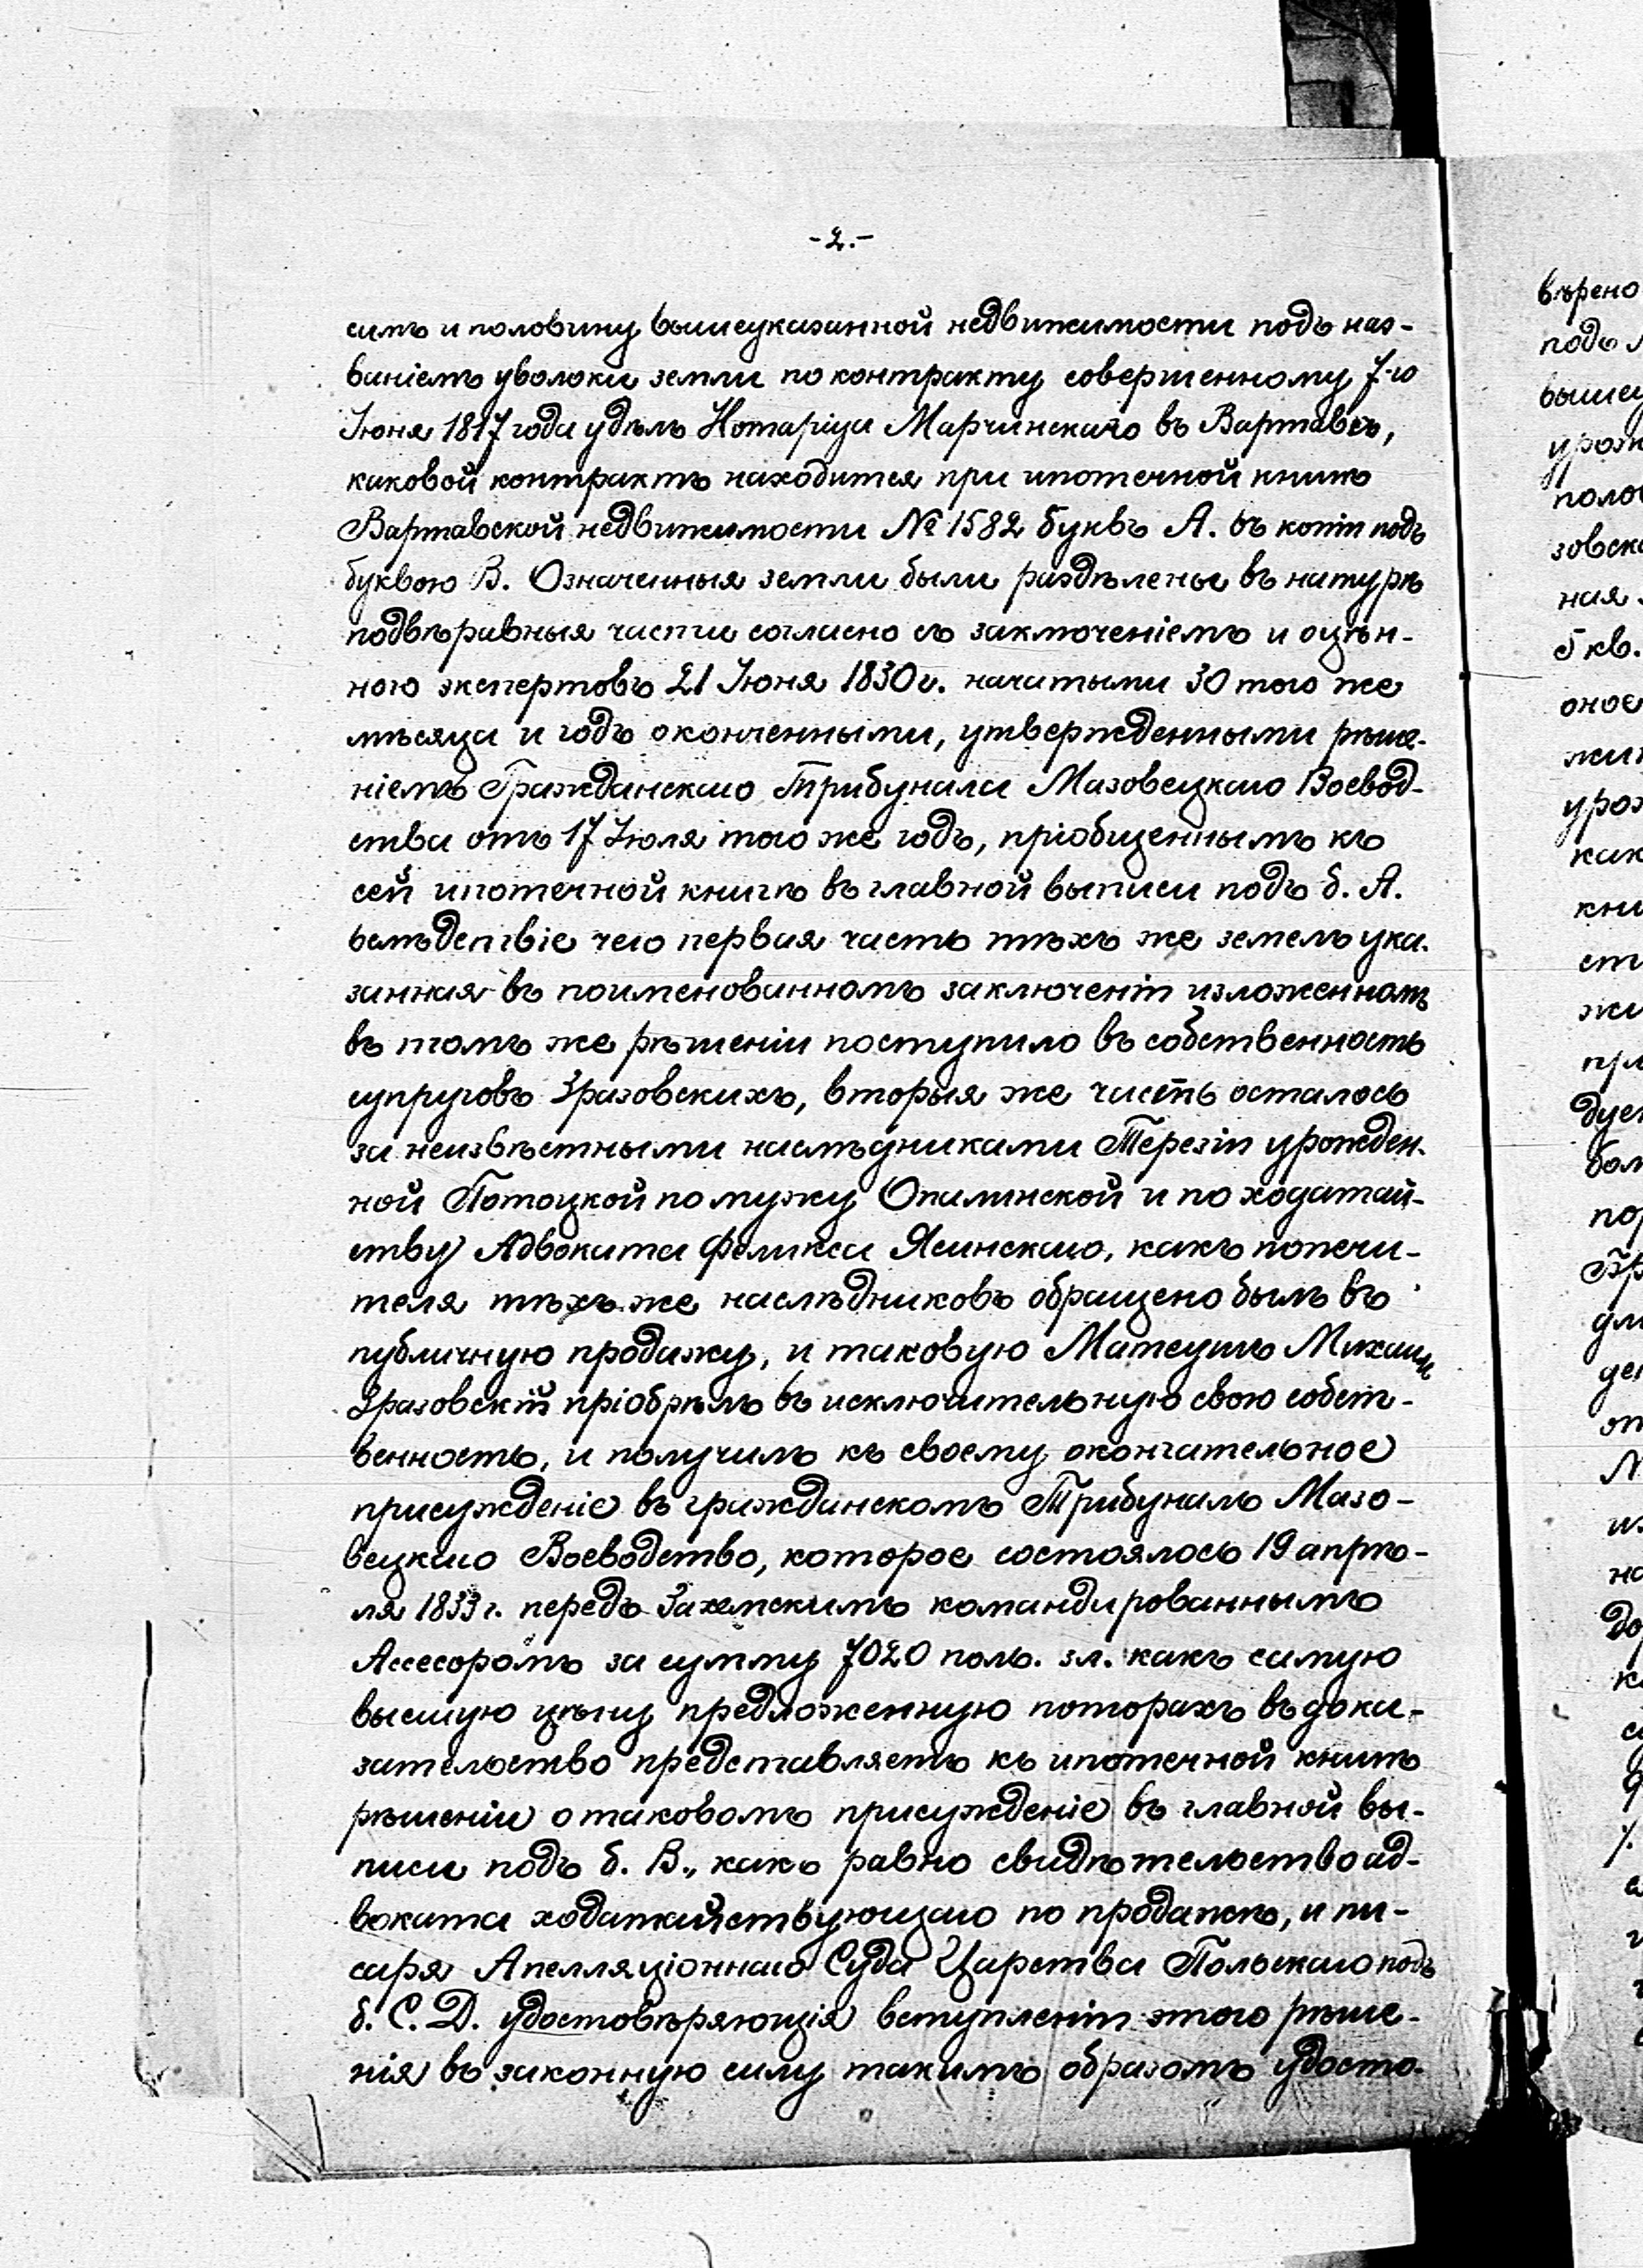 -2.-
симъ и половину вышеуказанной недвижимости подъ наз-
ваніемъ уволоки земли по контракту совершенному 7-го
Іюня 1817 года удѣлъ Нотаріуса Марчинскаго въ Варшавѣ,
каковой контрактъ находится при ипотечной книгѣ
Варшавской недвижимости № 1582 буквъ А. въ копіи подъ
буквою В. Означенныя земли были раздѣлены въ натурѣ
подвѣравныя части согласно съ заключеніемъ и оцѣн-
ною экспертовъ 21 Іюня 1830 г. начатыми 30 того же
мѣсяца и годъ оконченными, утвержденными рѣше-
ніемъ Гражданскаго Трибунала Мазовецкаго Воевод-
ства отъ 17 Іюля того же годъ, пріобщеннымъ къ
сей ипотечной книгѣ въ главной выписи подъ б. А.
вслѣдствіе чего первая часть тѣхъ же земель ука-
занная въ поименованномъ заключеніи изложенномъ
въ томъ же рѣшеніи поступило въ собственность
супруговъ Зразовскихъ, вторыя же часть осталось
за неизвѣстными наслѣдниками Терезіи урожден-
ной Потоцкой по мужу Опалинской и по ходатай-
ству Адвоката Феликса Ясинскаго, какъ попечи-
теля тѣхъ же наслѣдниковъ обращено былъ въ
публичную продажу, и таковую Матеушъ Михаилъ
Зразовскій пріобрѣлъ въ исключительную свою собст-
венность, и получилъ къ своему окончательное
присужденіе въ гражданскомъ Трибуналъ Мазо-
вецкаго Воеводство, которое состоялось 19 апрѣ-
ля 1833 г. передъ командированнымъ
Ассесоромъ за сумму 7020 поль. зл. какъ самую
высшую цѣну предложенную поторахъ въ дока-
зательство представляетъ къ ипотечной книгѣ
рѣшеніи о таковомъ присужденіе въ главной вы-
писи подъ б. В., какъ равно свидѣтельство ад-
воката ходатайствующаго по продажѣ, и пи-
саря Апелляціоннаго Суда Царства Польскаго подъ
б. С. D. удостовѣряющія вступленіи этого рѣше-
нія въ законную силу такимъ образомъ удосто-